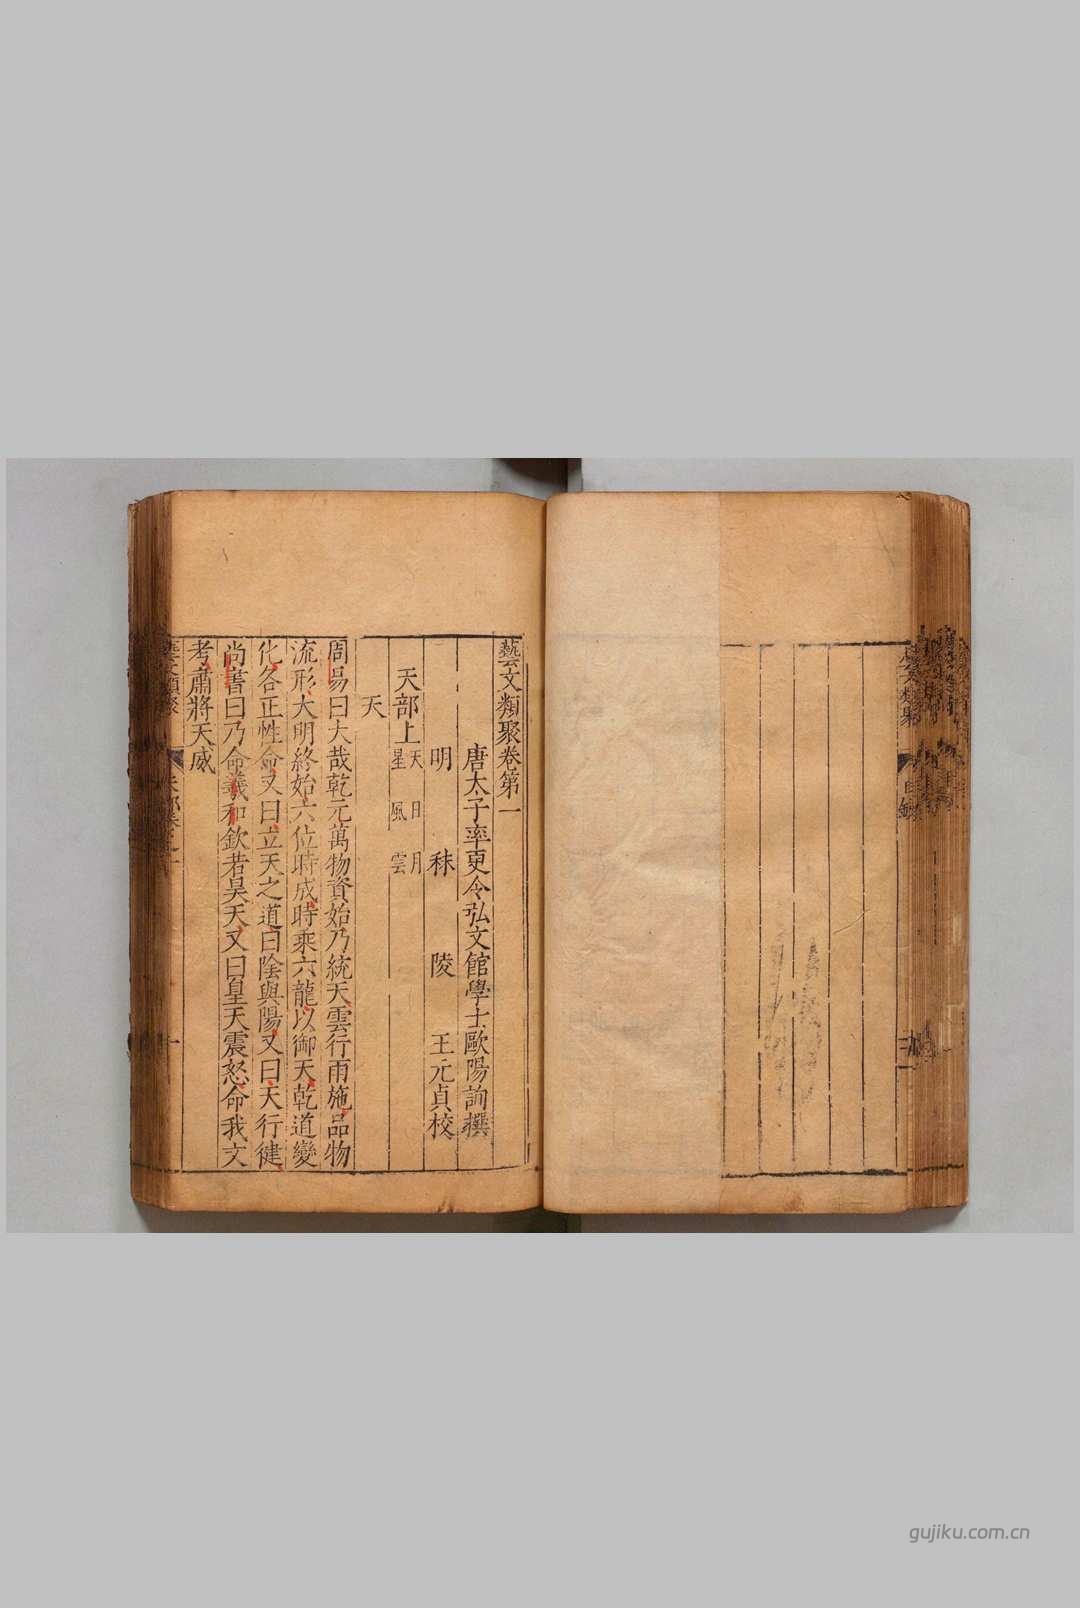 藝文類聚
目錄
三
藝文類聚卷第一
唐太子率更令弘文館學士歐陽詢撰
明 秣 陵 王元貞校
天部上
天 日 月
星 風 雲
天
周易曰大哉乾元萬物資始乃統天雲行雨施品物
流形大明終始六位時成時乘六龍以御天乾道變
化各正性命又曰立天之道曰陰與陽又曰天行健
尚書曰乃命羲和欽若昊天又曰皇天震怒命我文
考肅將天威
藝文類聚
天部卷之一
一
gujiku.com.cn